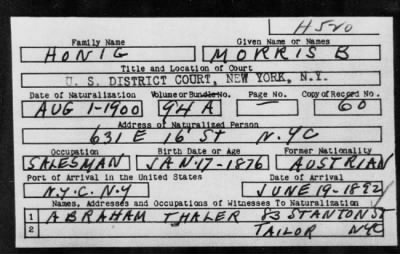 H 520
Family Name Given Name or Names
HONIG MORRIS B
Title and Location of Court
U. S. DISTRICT COURT, NEW YORK, N.Y.
Date of Naturalization Volume or Bundle No. Page No. Copy of Record No.
AUG 1-1900 94 A — 60
Address of Naturalized Person
631 E 16 ST N.Y.C
Occupation Birth Date or Age Former Nationality
SALESMAN JAN-17-1876 AUSTRIAN
Port of Arrival in the United States Date of Arrival
N.Y.C. N.Y JUNE 19-1892
Names, Addresses and Occupations of Witnesses To Naturalization
1 ABRAHAM THALER 83 STANTON ST
2 TAILOR NYC